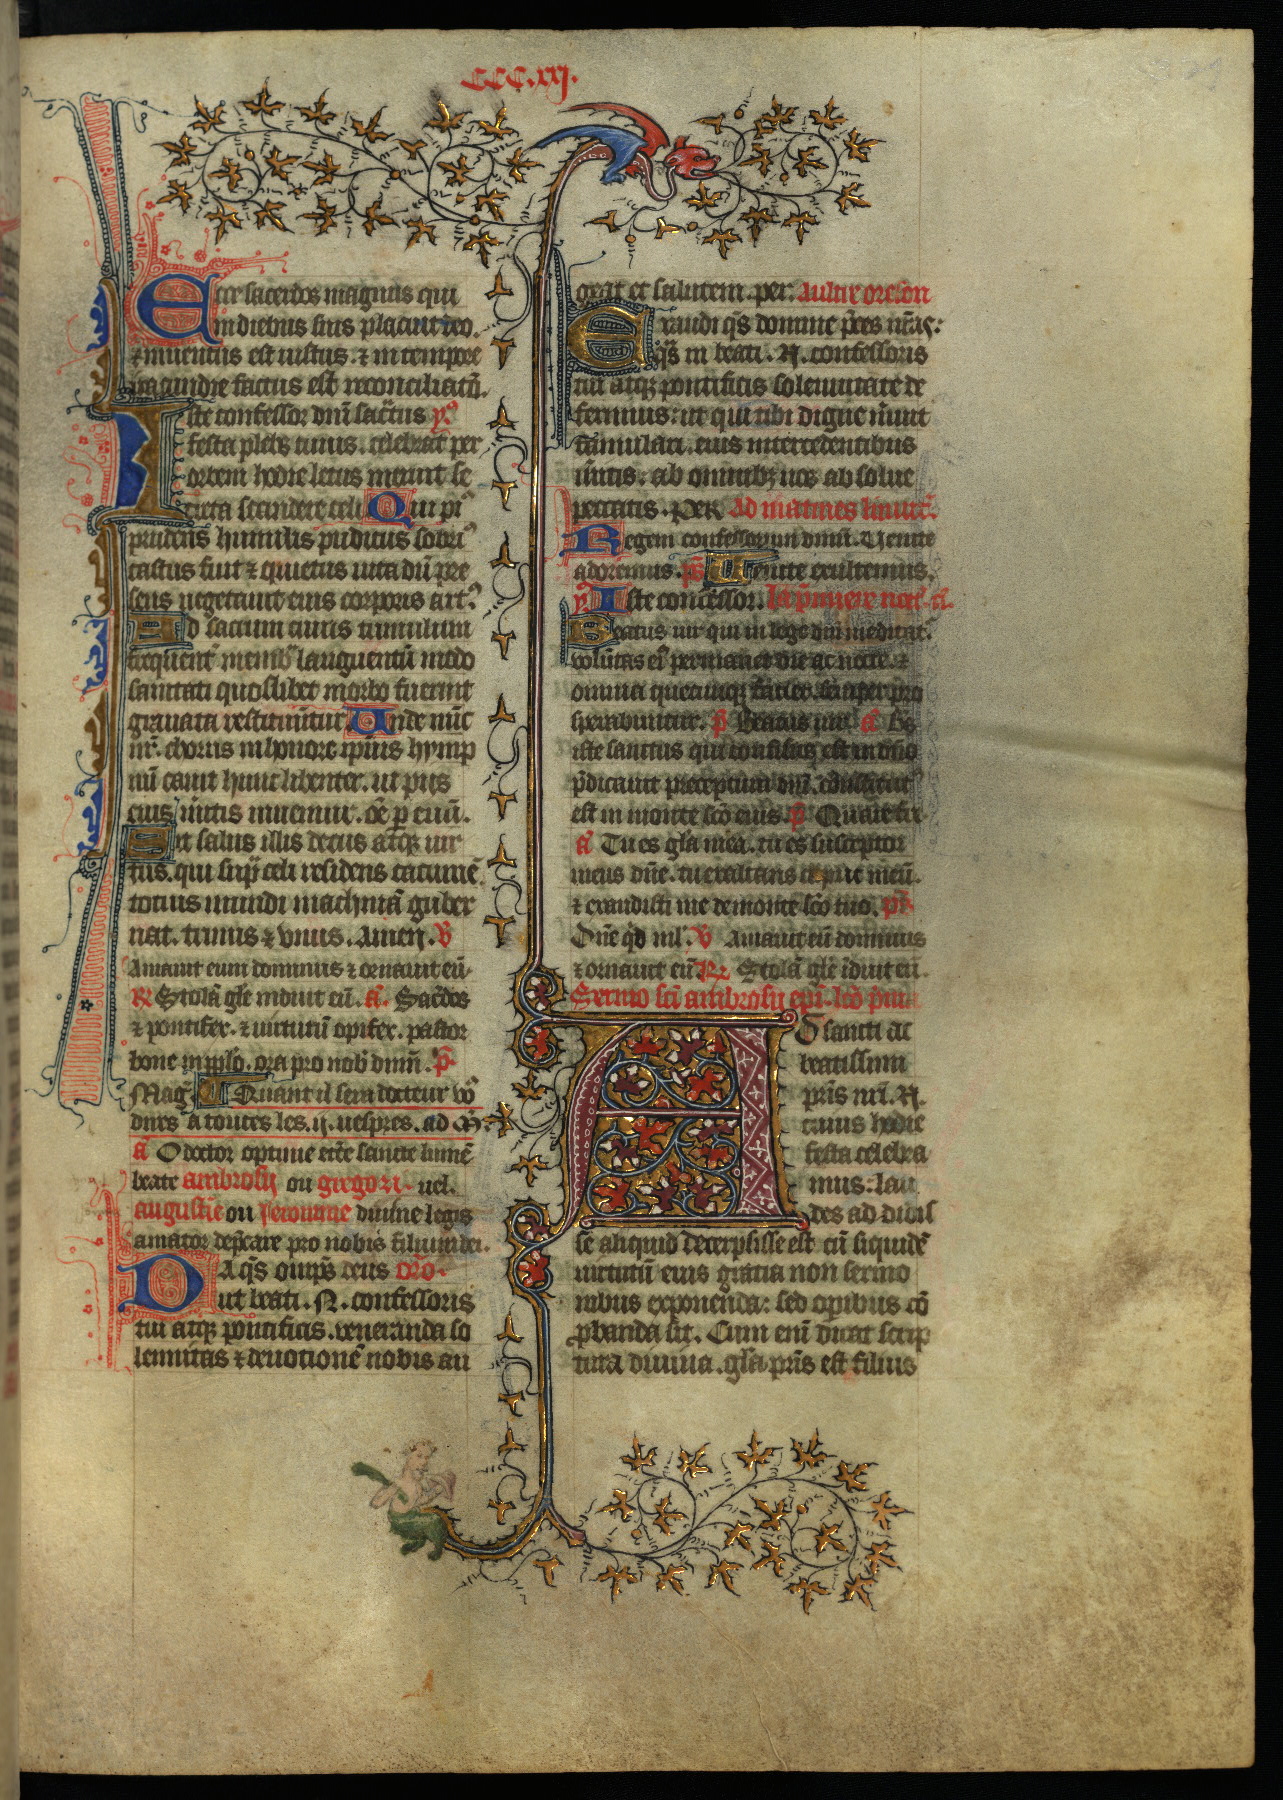 CCC.xxj.
Ecce sacerdos magnus qui
in diebus suis placuit deo.
⁊ inuentus est iustus. ⁊ in tempore
iracundie factus est reconciliatō.
Iste confessor dnī sacrtus ẏ.
festa plebs cuius. celebrat per
orbem hodie letus meruit se
creta scandere celi Qui piꝰ
prudens humilis pudicus sobriꝰ
castus fuit ⁊ quietus uita dū pre
sens uegetauit eius corporis artꝰ
Ad sacrum cuius tumulum
frequent̄ memb̄ languentū modo
sanitati quoslibet morbo fuerint
grauata restituūtur Unde nūc
nr̄ chorus in honore ipsius hymp
nū canit hunc libenter. ut pijs
eius mitis iuuemur. ōe p euū.
Sit salus illis decus atqꝫ uir
tus. qui supͣ celi residens cacumē.
totius mundi machinā guber
nat. trinus ⁊ vnus. Amen. v̄
Amauit eum dominus ⁊ ornauit eū.
R̄ Stolā gle induit eū. a͂. Sacerdos
⁊ pontifex. ⁊ uirtutū opifex. pastor
bone in pplo. ora pro nob̄ dnm̄. p̄
Mag. Quant il sera docteur vo
dires a toutes les .ij. uespres. ad M̄.
a͂ O doctor optime eccē sancte lumē
beate ambrosij ou gregori. uel.
augustie ou Jeroume diuine legis
amator dep̄care pro nobis filium dei.
DA qs̄ omps̄ deus oro.
ut beati. N. confessoris
tui atqꝫ pontificis. ueneranda so
lennitas ⁊ deuotionē nobis au
geat et salutem. per. Aultre oreson
Exaudi qs̄ domine p̄ces nr̄as:
qs̄ in beati. N. confessoris
tui atqꝫ pontificis solennitate de
ferimus: ut qui tibi digne mūit
famulari. eius intercedentibus
m̄itis. ab omnibꝫ nos absolue
peccatis. Per. Ad matines Inuit.
Regem confessorum dnm̄. Uenite
adoremus. ps̄ Uenite exultemus.
ẏ. Iste confessor. la p̄miere noct. a͂.
Beatus uir qui in lege dnī meditat̄.
volūtas eiꝰ permanet die ac nocte. ⁊
omnia quecunqꝫ faciet. semper pro
sperabuntur. p̄ Beatus uir. a͂ B̄s
iste sanctus qui confisus est in dn̄o
p̄dicauit preceptum dnī. constitutꝰ
est in monte sc̄o eius. p̄ Quare fr̄.
a͂ Tu es gla mea. tu es susceptor
meus dn̄e. tu exaltans caput meū.
⁊ exaudisti me de monte sc̄o tuo. ps̄
Dn̄e qd ml̄. v̄ Amauit eū dominus
⁊ ornauit eū. R̄ Stolā glē īduit eū.
Sermo sc̄i ambrosij epī. lc̄o p̄ma
A O sancti ac
beatissimi
pr̄is nr̄i. N.
cuius hodie
festa celebra
mus: lau
des ad didis
se aliquid decerpsisse est cū siquidē
uirtutū eius gratia non sermo
nibus exponenda: sed opibus cō
pbanda sit. Cum enī dicat scrip
tura diuina. gla pr̄is est filius